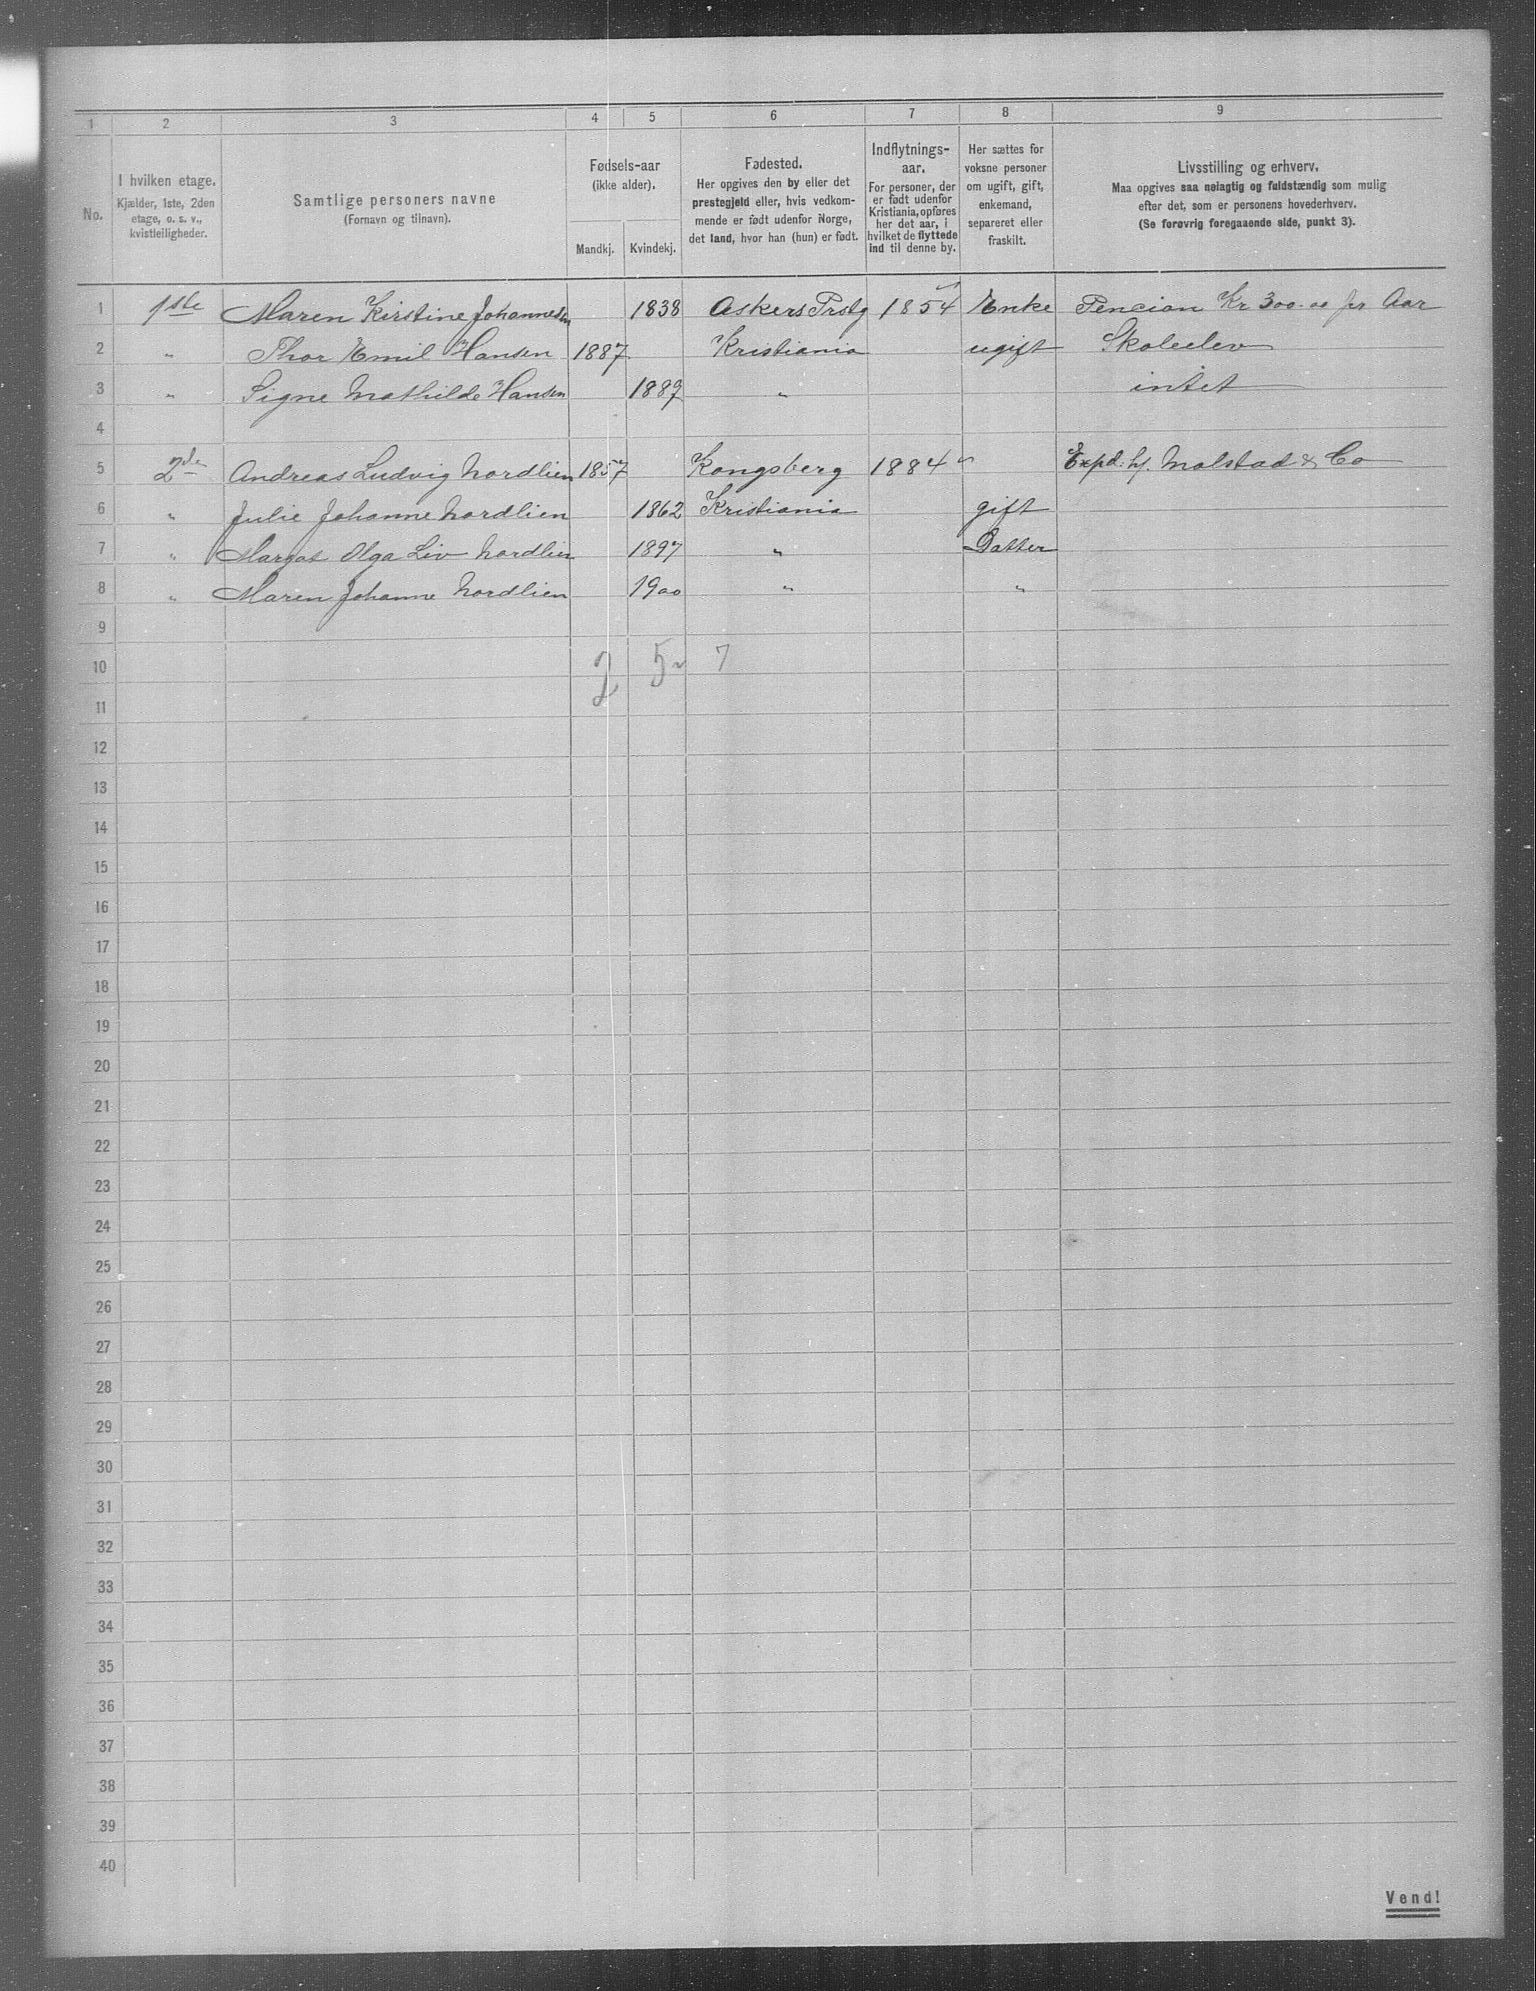 1 2 3 4 5 6 7 8 9
No.
I hvilken etage.
Kjælder, 1ste, 2den
etage, o. s. v.,
kvistleiligheder.
Samtlige personers navne
(Fornavn og tilnavn).
Fødsels-aar
(ikke alder).
Mandkj. Kvindekj.
Fødested.
Her opgives den by eller det
prestegjeld eller, hvis vedkom-
mende er født udenfor Norge,
det land, hvor han (hun) er født.
Indflytnings-
aar.
For personer, der
er født udenfor
Kristiania, opføres
her det aar, i
hvilket de flyttede
ind til denne by.
Her sættes for
voksne personer
om ugift, gift,
enkemand,
separeret eller
fraskilt.
Livsstilling og erhverv.
Maa opgives saa nøiagtig og fuldstændig som mulig
efter det, som er personens hovederhverv.
(Se forøvrig foregaaende side, punkt 3).
1 1ste Maren Kirstine Johannesen 1838 Askers Prstg 1854 Enke Pencion Kr 300.00 pr Aar
2 " Thor Emil Hansen 1887 Kristiania ugift Skoleelev
3 " Signe Mathilde Hansen 1889 " intet
4
5 2de Andreas Ludvig Nordlien 1857 Kongsberg 1884 " Expd. hj. Molstad & Co
6 " Julie Johanne Nordlien 1862 Kristiania gift
7 " Margot Olga Liv Nordlien 1897 " Datter
8 " Maren Johanne Nordlien 1900 " "
9
10 2 5 7
11
12
13
14
15
16
17
18
19
20
21
22
23
24
25
26
27
28
29
30
31
32
33
34
35
36
37
38
39
40
Vend!